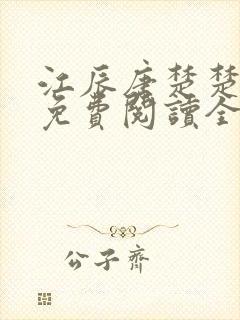 江辰唐楚楚
免費閱讀全
公子齊